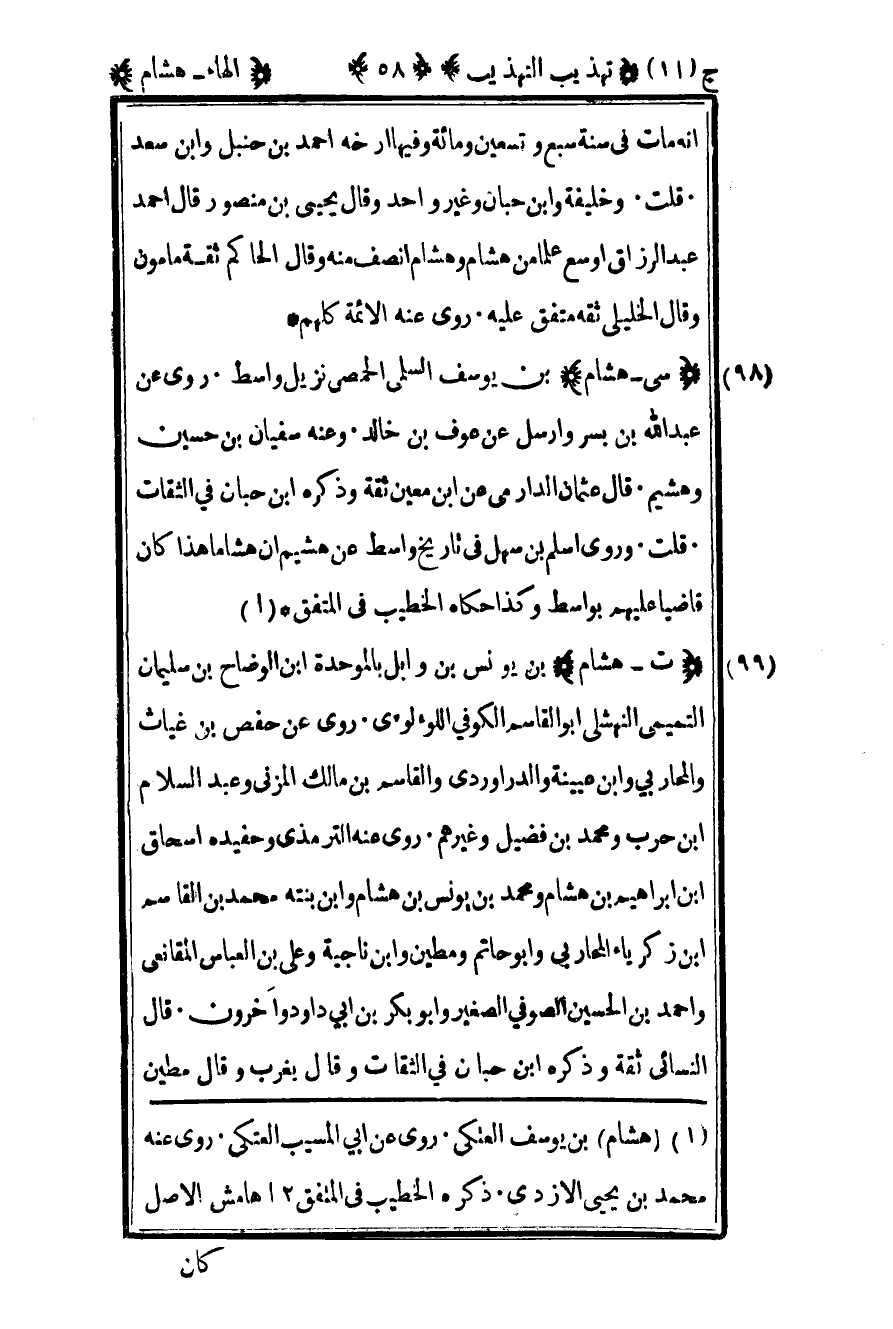 ج (١١) ﴿ تهذيب التهذيب ﴾ ﴿ ٥٨ ﴾ ﴿ الهاء ـ هشام ﴾
انه مات فى سنة سبع و تسعين ومائة وفيها ارخه احمد بن حنبل وابن سعد
٠ قلت ٠ وخليفة وابن حبان وغير واحد وقال يحيى بن منصور قال احمد
عبد الرزاق اوسع علما من هشام وهشام انصف منه وقال الحاكم ثقة مامون
وقال الخليلى ثقه متفق عليه ٠ روى عنه الائمة كلهم *
(٩٨) ﴿ سى ـ هشام ﴾ بن يوسف السلمى الحمصى نزيل واسط ٠ روى عن
عبد الله بن بسر وارسل عن عوف بن خالد ٠ وعنه سفيان بن حسين
وهشيم ٠ قال عثمان الدارمى عن ابن معين ثقة وذكره ابن حبان في الثقات
٠ قلت ٠ وروى اسلم بن سهل فى تاريخ واسط عن هشيم ان هشاما هذا كان
قاضيا عليهم بواسط وكذا حكاه الخطيب فى المتفق * (١)
(٩٩) ﴿ ت ـ هشام ﴾ بن يونس بن وابل بالموحدة ابن الوضاح بن سليمان
التميمى النهشلى ابو القاسم الكوفي اللوءلوءى ٠ روى عن حفص بن غياث
والمحاربي وابن عيينة والدراوردى والقاسم بن مالك المزنى وعبد السلام
ابن حرب ومحمد بن فضيل وغيرهم ٠ روى عنه الترمذى وحفيده اسحاق
ابن ابراهيم بن هشام ومحمد بن يونس بن هشام وابن بنته محمد بن القاسم
ابن زكرياء المحاربي وابو حاتم ومطين وابن ناجية وعلى بن العباس المقانعى
واحمد بن الحسين الصوفي الصغير وابو بكر بن ابي داود وآخرون ٠ قال
النسائى ثقة وذكره ابن حبان في الثقات وقال يغرب وقال مطين
(١) (هشام) بن يوسف العتكى ٠ روى عن ابي المسيب العتكى ٠ روى عنه
محمد بن يحيى الازدى ٠ ذكره الخطيب فى المتفق ١٢ هامش الاصل
كان